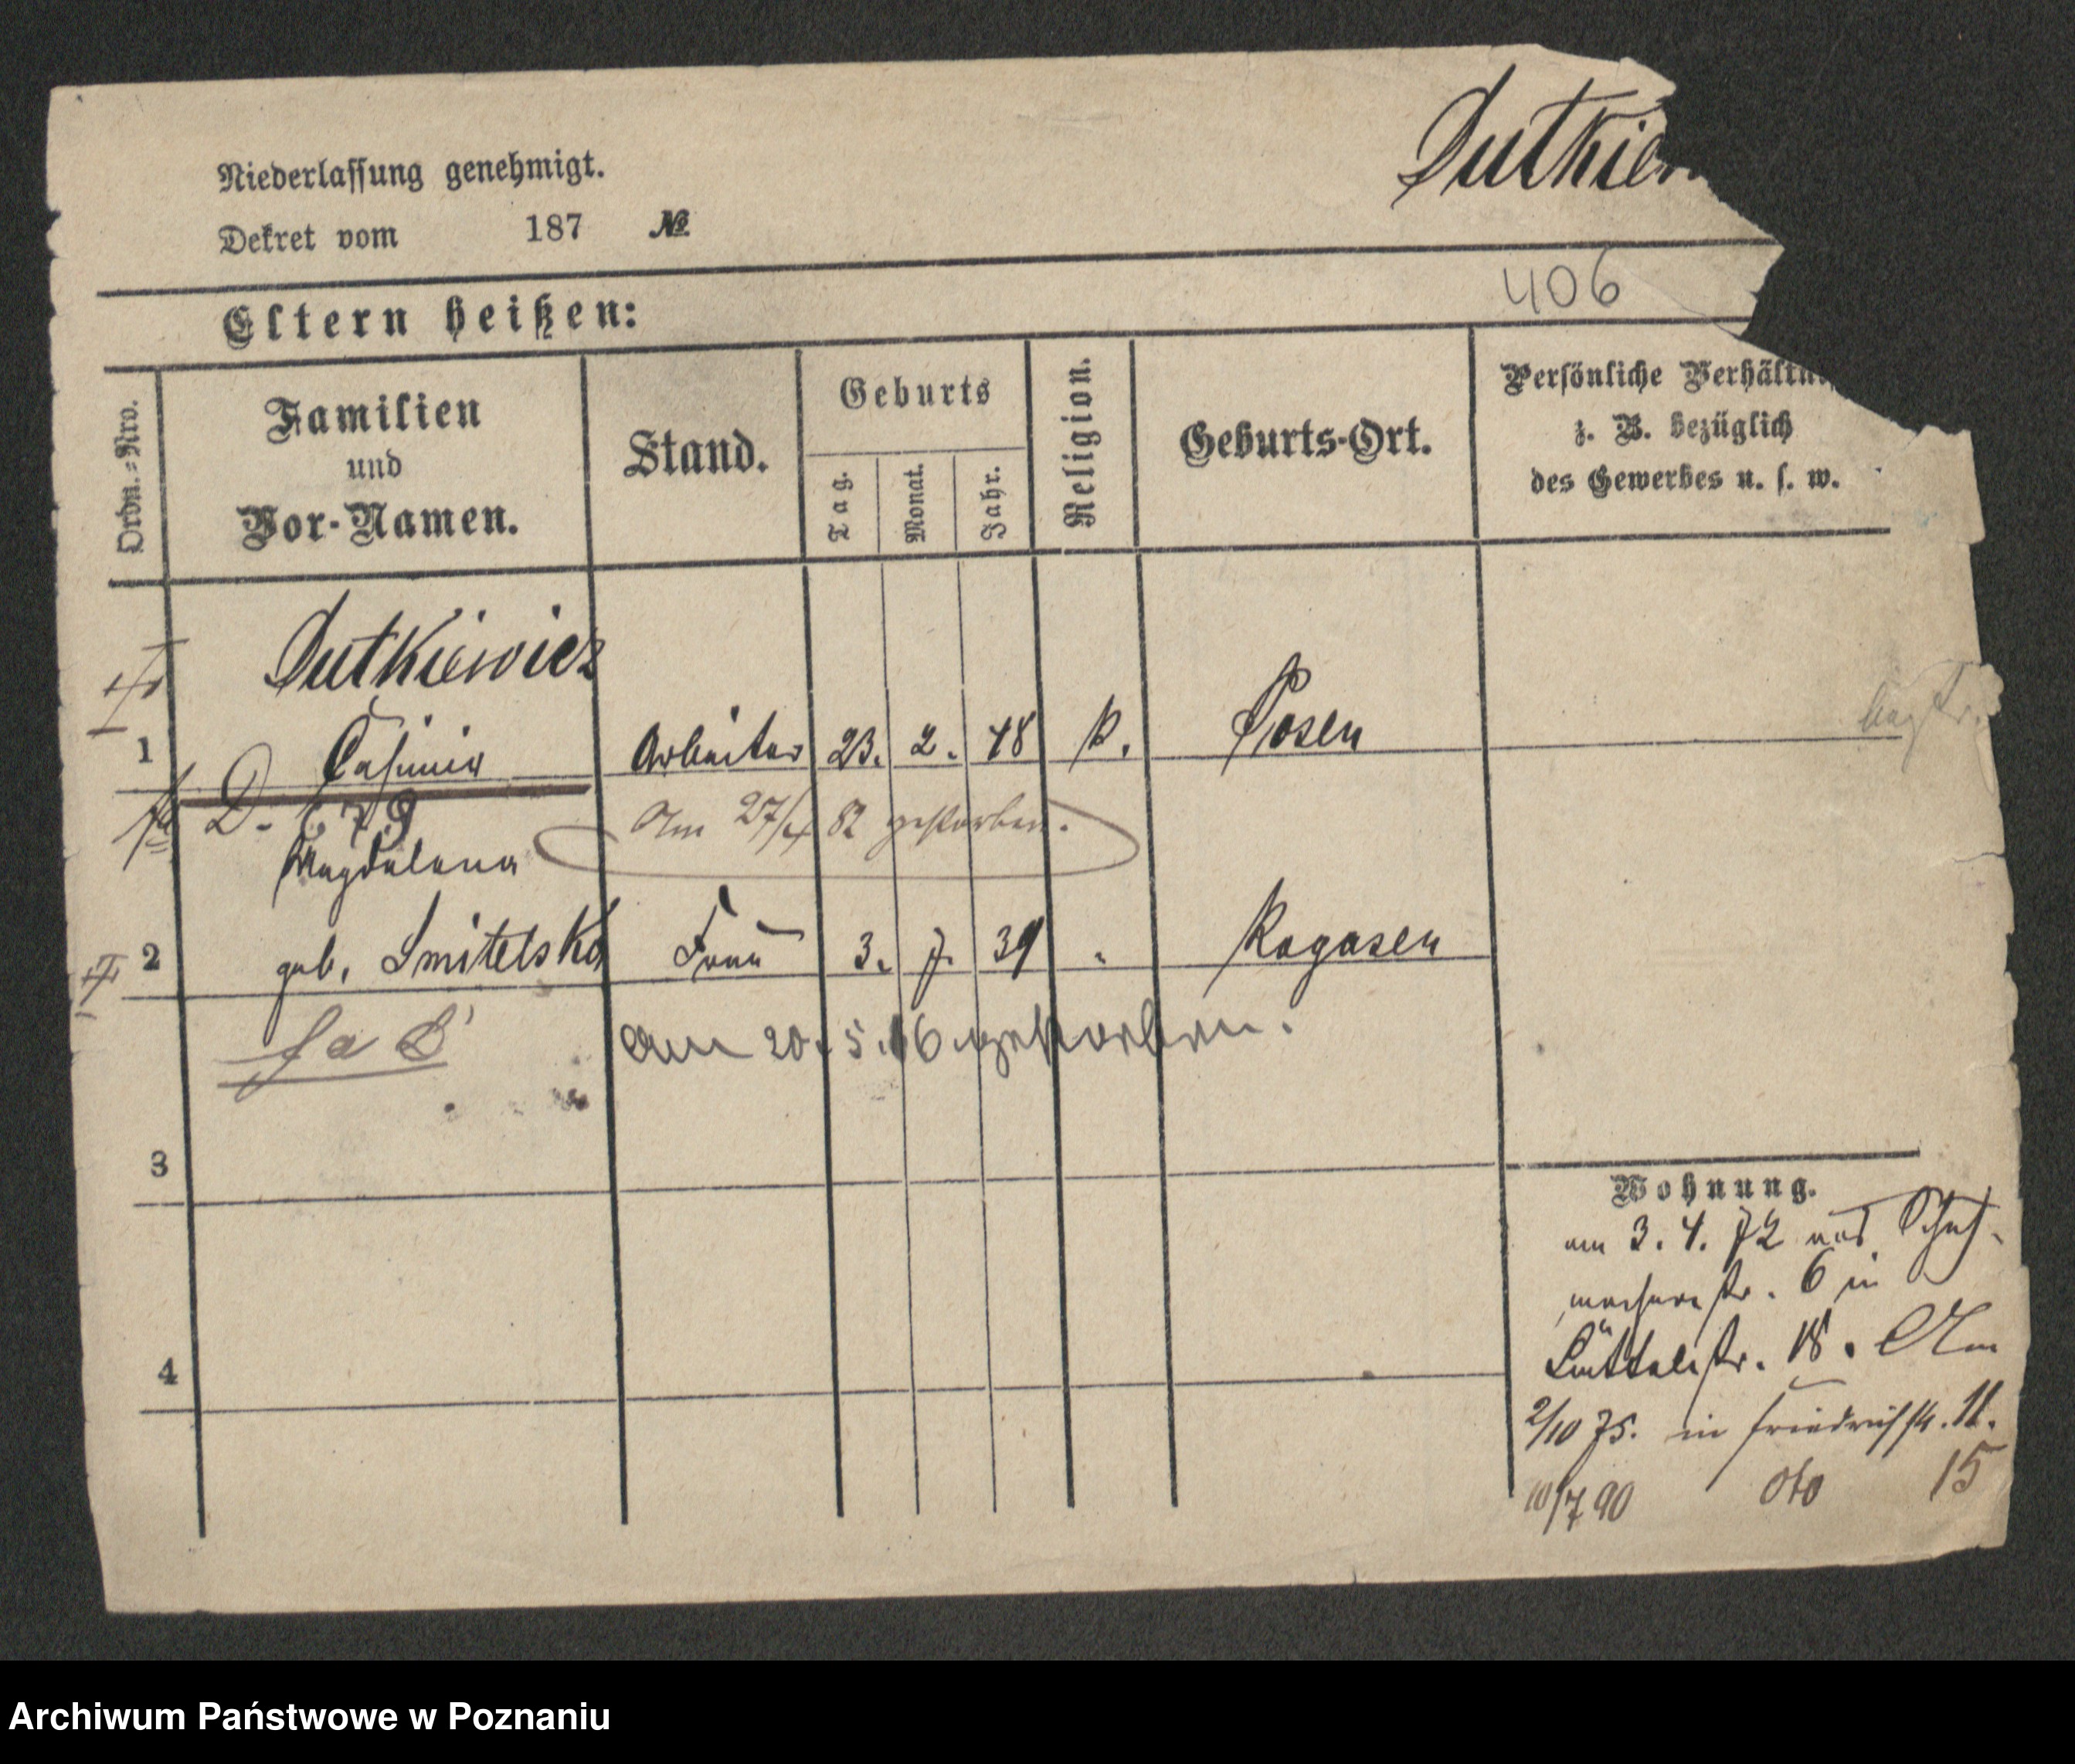 Dutkiew
Niederlassung genehmigt.
Dekret vom 187 №
406
Eltern heißen:
Ordn.-Nro.
Familien
und
Vor-Namen.
Stand.
Geburts
Tag.
Monat.
Jahr.
Religion.
Geburts-Ort.
Persönliche Verhältn
z. B. bezüglich
des Gewerbes u. s. w.
Dutkiewicz
1 Casimir Arbeiter 23. 2. 48 k. Posen
D. 679 Am 27/4 82 gestorben.
Magdalena
2 geb. Smitelska Frau 3. 7. 39 " Rogasen
am 20. 5. 06 gestorben.
3
4
Wohnung.
am 3. 4. 72 aus Schuh-
macherstr. 6 in
Büttelstr. 18. Am
2/10 75. in Friedrichstr. 11.
10/7 90 15
Archiwum Państwowe w Poznaniu